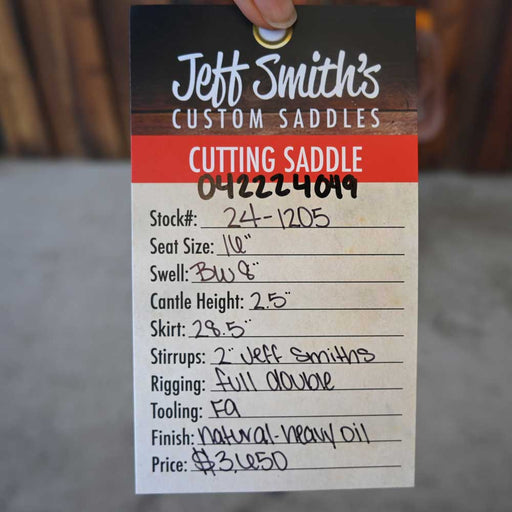 Jeff Smith's
CUSTOM SADDLES
CUTTING SADDLE
042224049
Stock#: 24-1205
Seat Size: 16"
Swell: BW 8"
Cantle Height: 2.5"
Skirt: 28.5"
Stirrups: 2" Jeff Smiths
Rigging: full double
Tooling: FQ
Finish: natural-heavy oil
Price: $3,650